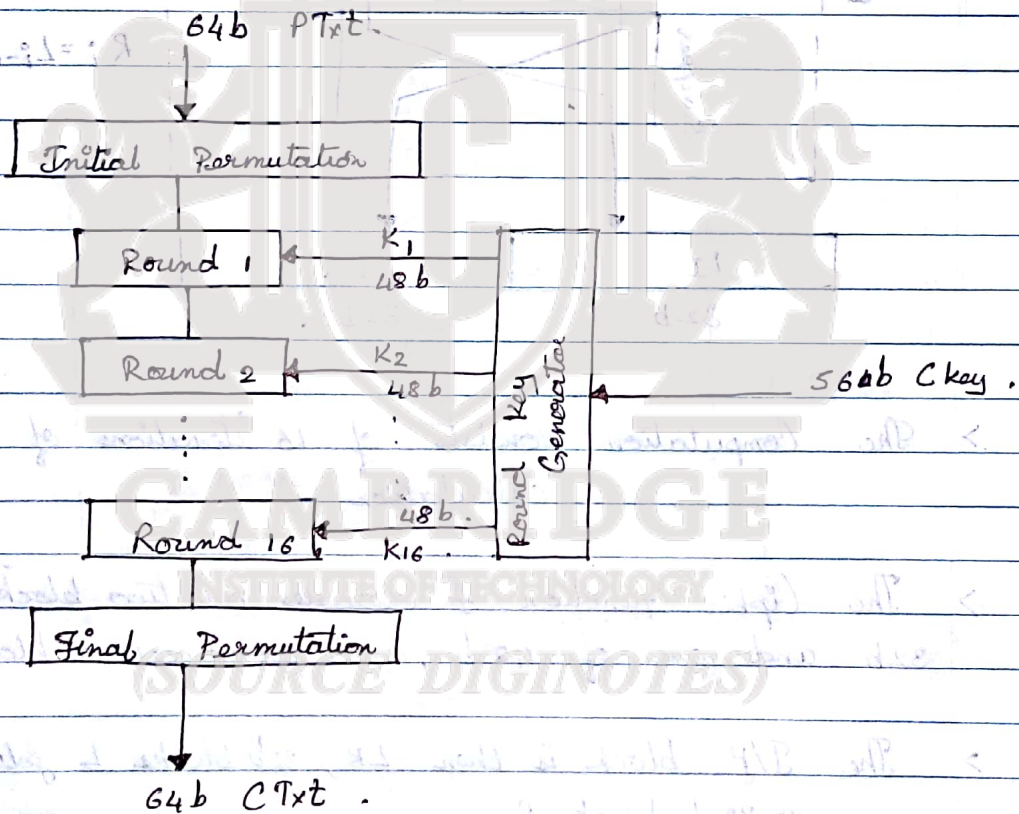 64b PTxt.
Initial Permutation
Round 1
K1
48b
Round 2
K2
48b
Round Key Generator
56b Ckey.
Round 16
48b.
K16.
Final Permutation
64b CTxt.
CAMBRIDGE
INSTITUTE OF TECHNOLOGY
(SOURCE DIGINOTES)